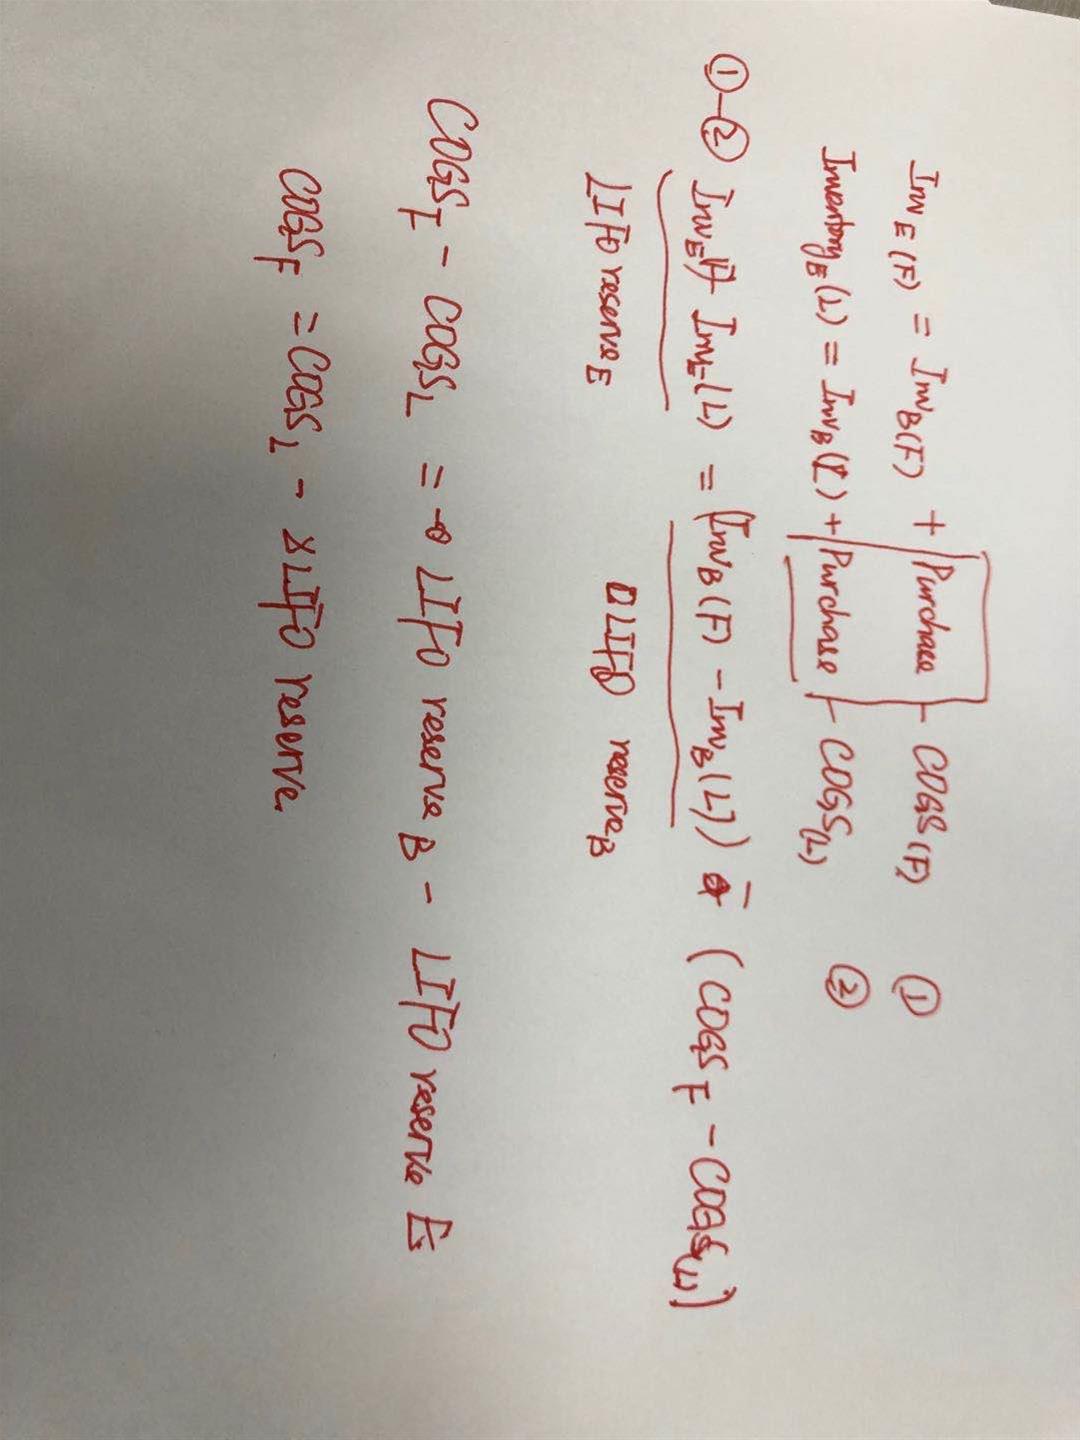 Inv E (F) = Inv B (F) + Purchase - COGS (F) ①
Inventory E (L) = Inv B (L) + Purchase - COGS (L) ②
①-② Inv E (F) - Inv E (L) = (Inv B (F) - Inv B (L)) - (COGS F - COGS (L))
LIFO reserve E LIFO reserve B
COGS F - COGS L = LIFO reserve B - LIFO reserve E
COGS F = COGS L - LIFO reserve.